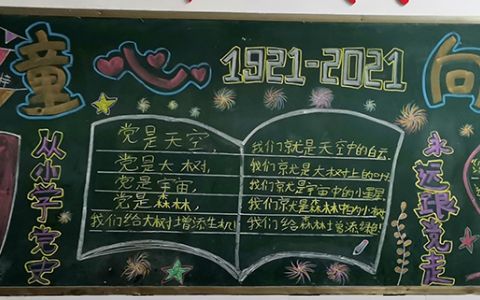 童心 1921-2021 向
从小学党史
党是天空,
党是大树,
党是宇宙,
党是森林,
我们给大树增添生机
我们就是天空中的白云,
我们就是大树上的
我们就是宇宙中的小星星
我们就是森林中的小树
我们给森林增添绿色
永远跟党走